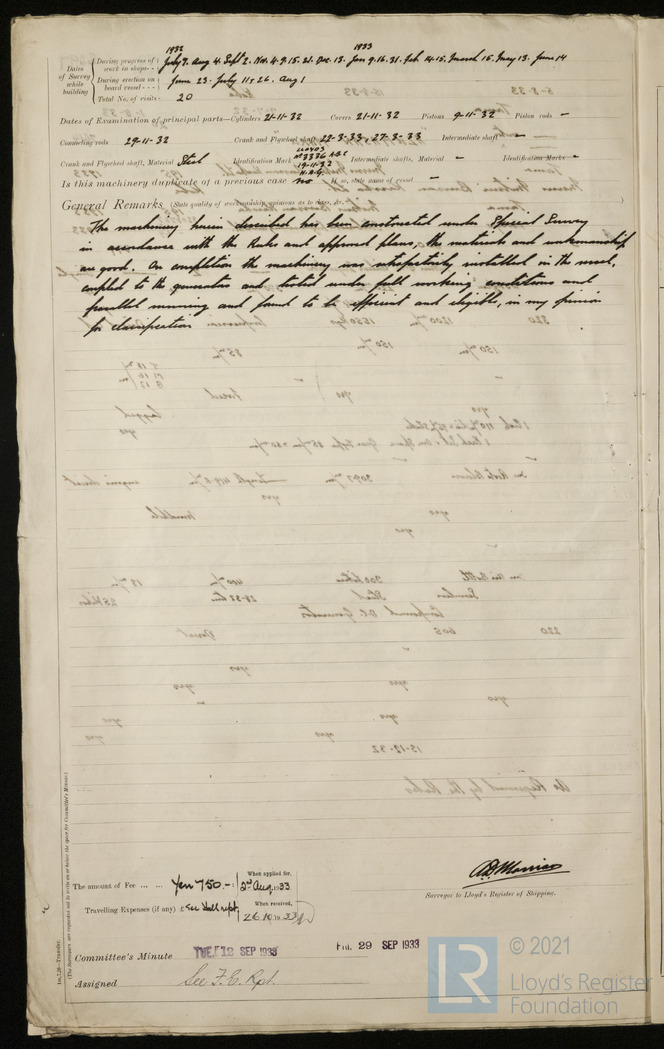 1932 1933
Dates of Survey while building
During progress of work in shops - - July 7. Aug 4. Sept 2. Nov. 4. 9. 15. 21. Dec. 13. Jan 9. 16. 31. Feb. 14. 15. March 15. May 13. June 14
During erection on board vessel - - - June 23. July 11 & 26. Aug 1
Total No. of visits - 20
Dates of Examination of principal parts—Cylinders 21-11-32 Covers 21-11-32 Pistons 9-11-32 Piston rods -
Connecting rods 29-11-32 Crank and Flywheel shaft 22-3-33, 27-3-33 Intermediate shaft -
LLOYDS
Crank and Flywheel shaft, Material Steel Identification Mark Nº 3336 A B C Intermediate shafts, Material - Identification Marks -
19-11-32
H.A.G.
Is this machinery duplicate of a previous case no If so, state name of vessel -
General Remarks (State quality of workmanship, opinions as to class, &c.
The machinery herein described has been constructed under Special Survey
in accordance with the Rules and approved plans, the materials and workmanship
are good. On completion the machinery was satisfactorily installed in the vessel,
coupled to the generators and tested under full working conditions and
parallel running and found to be efficient and eligible, in my opinion
for classification
The amount of Fee ... ... Yen 750.-: When applied for, 2nd Aug. 1933
Travelling Expenses (if any) £ See Hull rept. When received, 26.10.1933
Surveyor to Lloyd's Register of Shipping.
Committee's Minute TUE. 12 SEP 1933 FRI. 29 SEP 1933
Assigned See F.E. Rpt.
1m,7,26—Transfer.
(The Surveyors are requested not to write on or below the space for Committee's Minute.)
© 2021
LR Lloyd's Register
Foundation